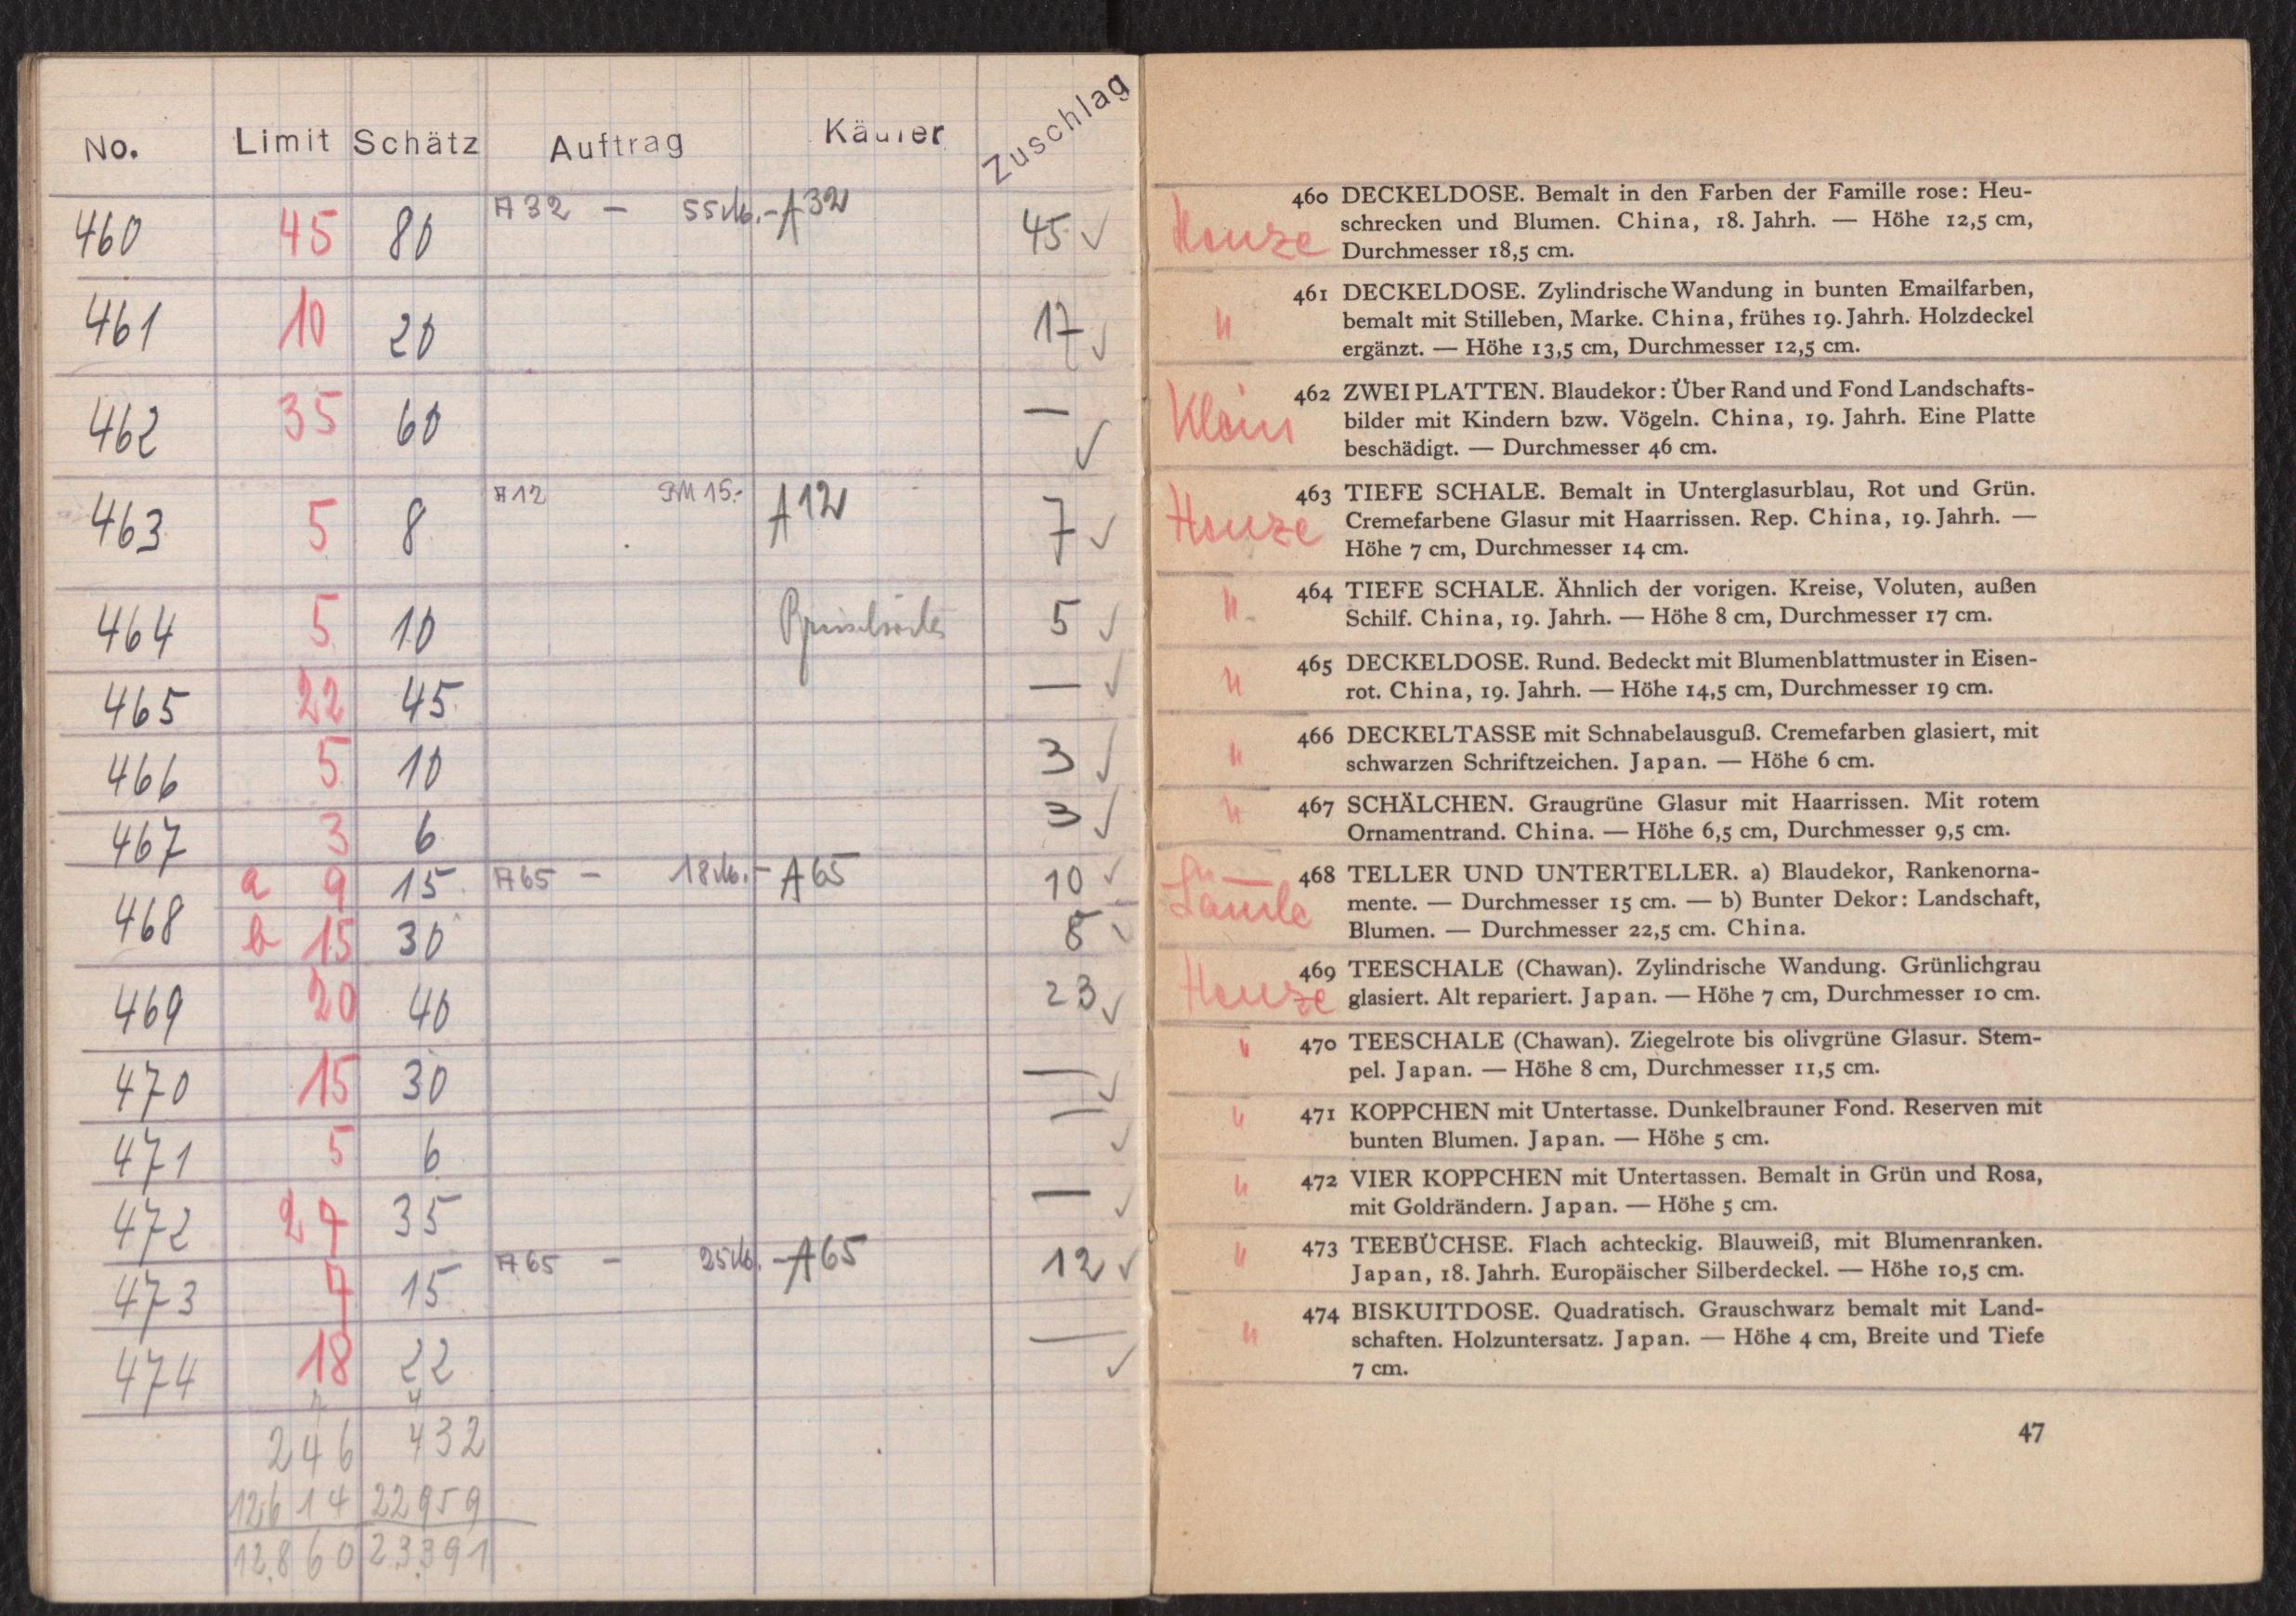 No. Limit Schätz Auftrag Käufer Zuschlag
460 45 80 A32 – 55 M.- A32 45 ✓
461 10 20 17 ✓
462 35 60 — ✓
463 5 8 A12 RM 15.- A12 7 ✓
464 5 10 5 ✓
465 22 45 — ✓
466 5 10 3 ✓
467 3 6 3 ✓
468 a 9 15 A65 – 18 M.- A65 10 ✓
b 15 30 8 ✓
469 20 40 23 ✓
470 15 30 — ✓
471 5 6 — ✓
472 27 35 — ✓
473 7 15 A65 – 25 M.- A65 12 ✓
474 18 22 — ✓
246 432
12614 22959
12.860 23.391
460 DECKELDOSE. Bemalt in den Farben der Famille rose: Heu-
schrecken und Blumen. China, 18. Jahrh. — Höhe 12,5 cm,
Henze Durchmesser 18,5 cm.
461 DECKELDOSE. Zylindrische Wandung in bunten Emailfarben,
" bemalt mit Stilleben, Marke. China, frühes 19. Jahrh. Holzdeckel
ergänzt. — Höhe 13,5 cm, Durchmesser 12,5 cm.
462 ZWEI PLATTEN. Blaudekor: Über Rand und Fond Landschafts-
Klein bilder mit Kindern bzw. Vögeln. China, 19. Jahrh. Eine Platte
beschädigt. — Durchmesser 46 cm.
463 TIEFE SCHALE. Bemalt in Unterglasurblau, Rot und Grün.
Henze Cremefarbene Glasur mit Haarrissen. Rep. China, 19. Jahrh. —
Höhe 7 cm, Durchmesser 14 cm.
" 464 TIEFE SCHALE. Ähnlich der vorigen. Kreise, Voluten, außen
Schilf. China, 19. Jahrh. — Höhe 8 cm, Durchmesser 17 cm.
" 465 DECKELDOSE. Rund. Bedeckt mit Blumenblattmuster in Eisen-
rot. China, 19. Jahrh. — Höhe 14,5 cm, Durchmesser 19 cm.
" 466 DECKELTASSE mit Schnabelausguß. Cremefarben glasiert, mit
schwarzen Schriftzeichen. Japan. — Höhe 6 cm.
" 467 SCHÄLCHEN. Graugrüne Glasur mit Haarrissen. Mit rotem
Ornamentrand. China. — Höhe 6,5 cm, Durchmesser 9,5 cm.
468 TELLER UND UNTERTELLER. a) Blaudekor, Rankenorna-
mente. — Durchmesser 15 cm. — b) Bunter Dekor: Landschaft,
Blumen. — Durchmesser 22,5 cm. China.
469 TEESCHALE (Chawan). Zylindrische Wandung. Grünlichgrau
Henze glasiert. Alt repariert. Japan. — Höhe 7 cm, Durchmesser 10 cm.
" 470 TEESCHALE (Chawan). Ziegelrote bis olivgrüne Glasur. Stem-
pel. Japan. — Höhe 8 cm, Durchmesser 11,5 cm.
" 471 KOPPCHEN mit Untertasse. Dunkelbrauner Fond. Reserven mit
bunten Blumen. Japan. — Höhe 5 cm.
" 472 VIER KOPPCHEN mit Untertassen. Bemalt in Grün und Rosa,
mit Goldrändern. Japan. — Höhe 5 cm.
" 473 TEEBÜCHSE. Flach achteckig. Blauweiß, mit Blumenranken.
Japan, 18. Jahrh. Europäischer Silberdeckel. — Höhe 10,5 cm.
474 BISKUITDOSE. Quadratisch. Grauschwarz bemalt mit Land-
" schaften. Holzuntersatz. Japan. — Höhe 4 cm, Breite und Tiefe
7 cm.
47